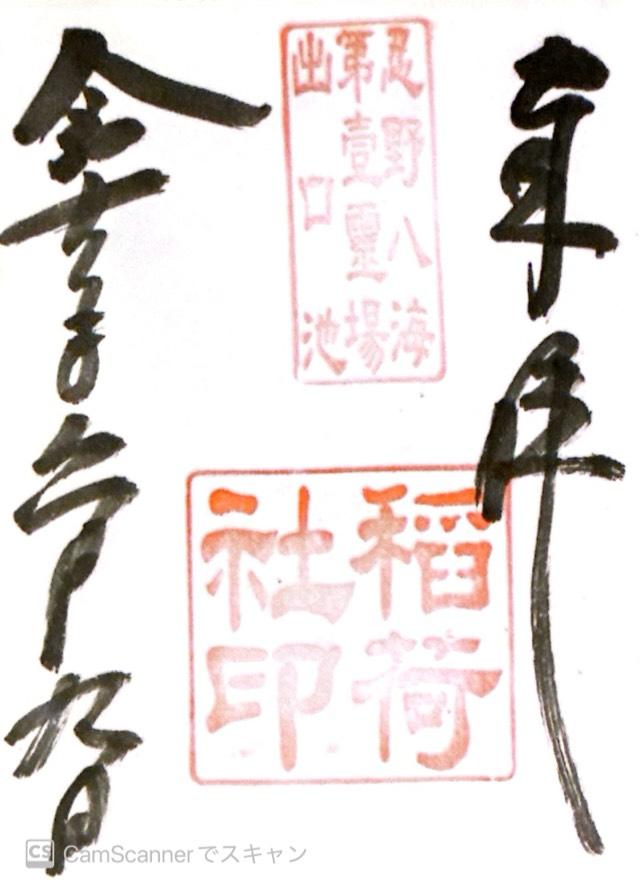 奉拝
忍野八海
第壹霊場
出口池
稲荷
社印
六月九日
CS CamScannerでスキャン